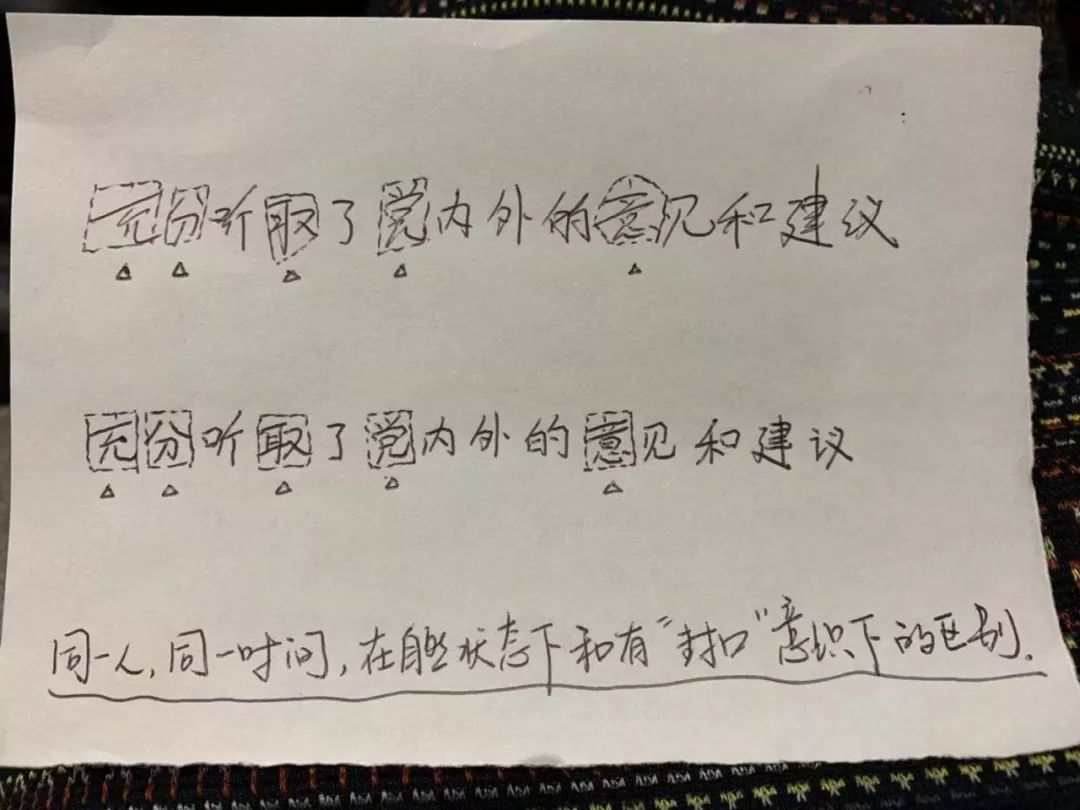 充分听取了党内外的意见和建议
充分听取了党内外的意见和建议
同一人,同一时间,在自然状态下和有“封口”意识下的区别.